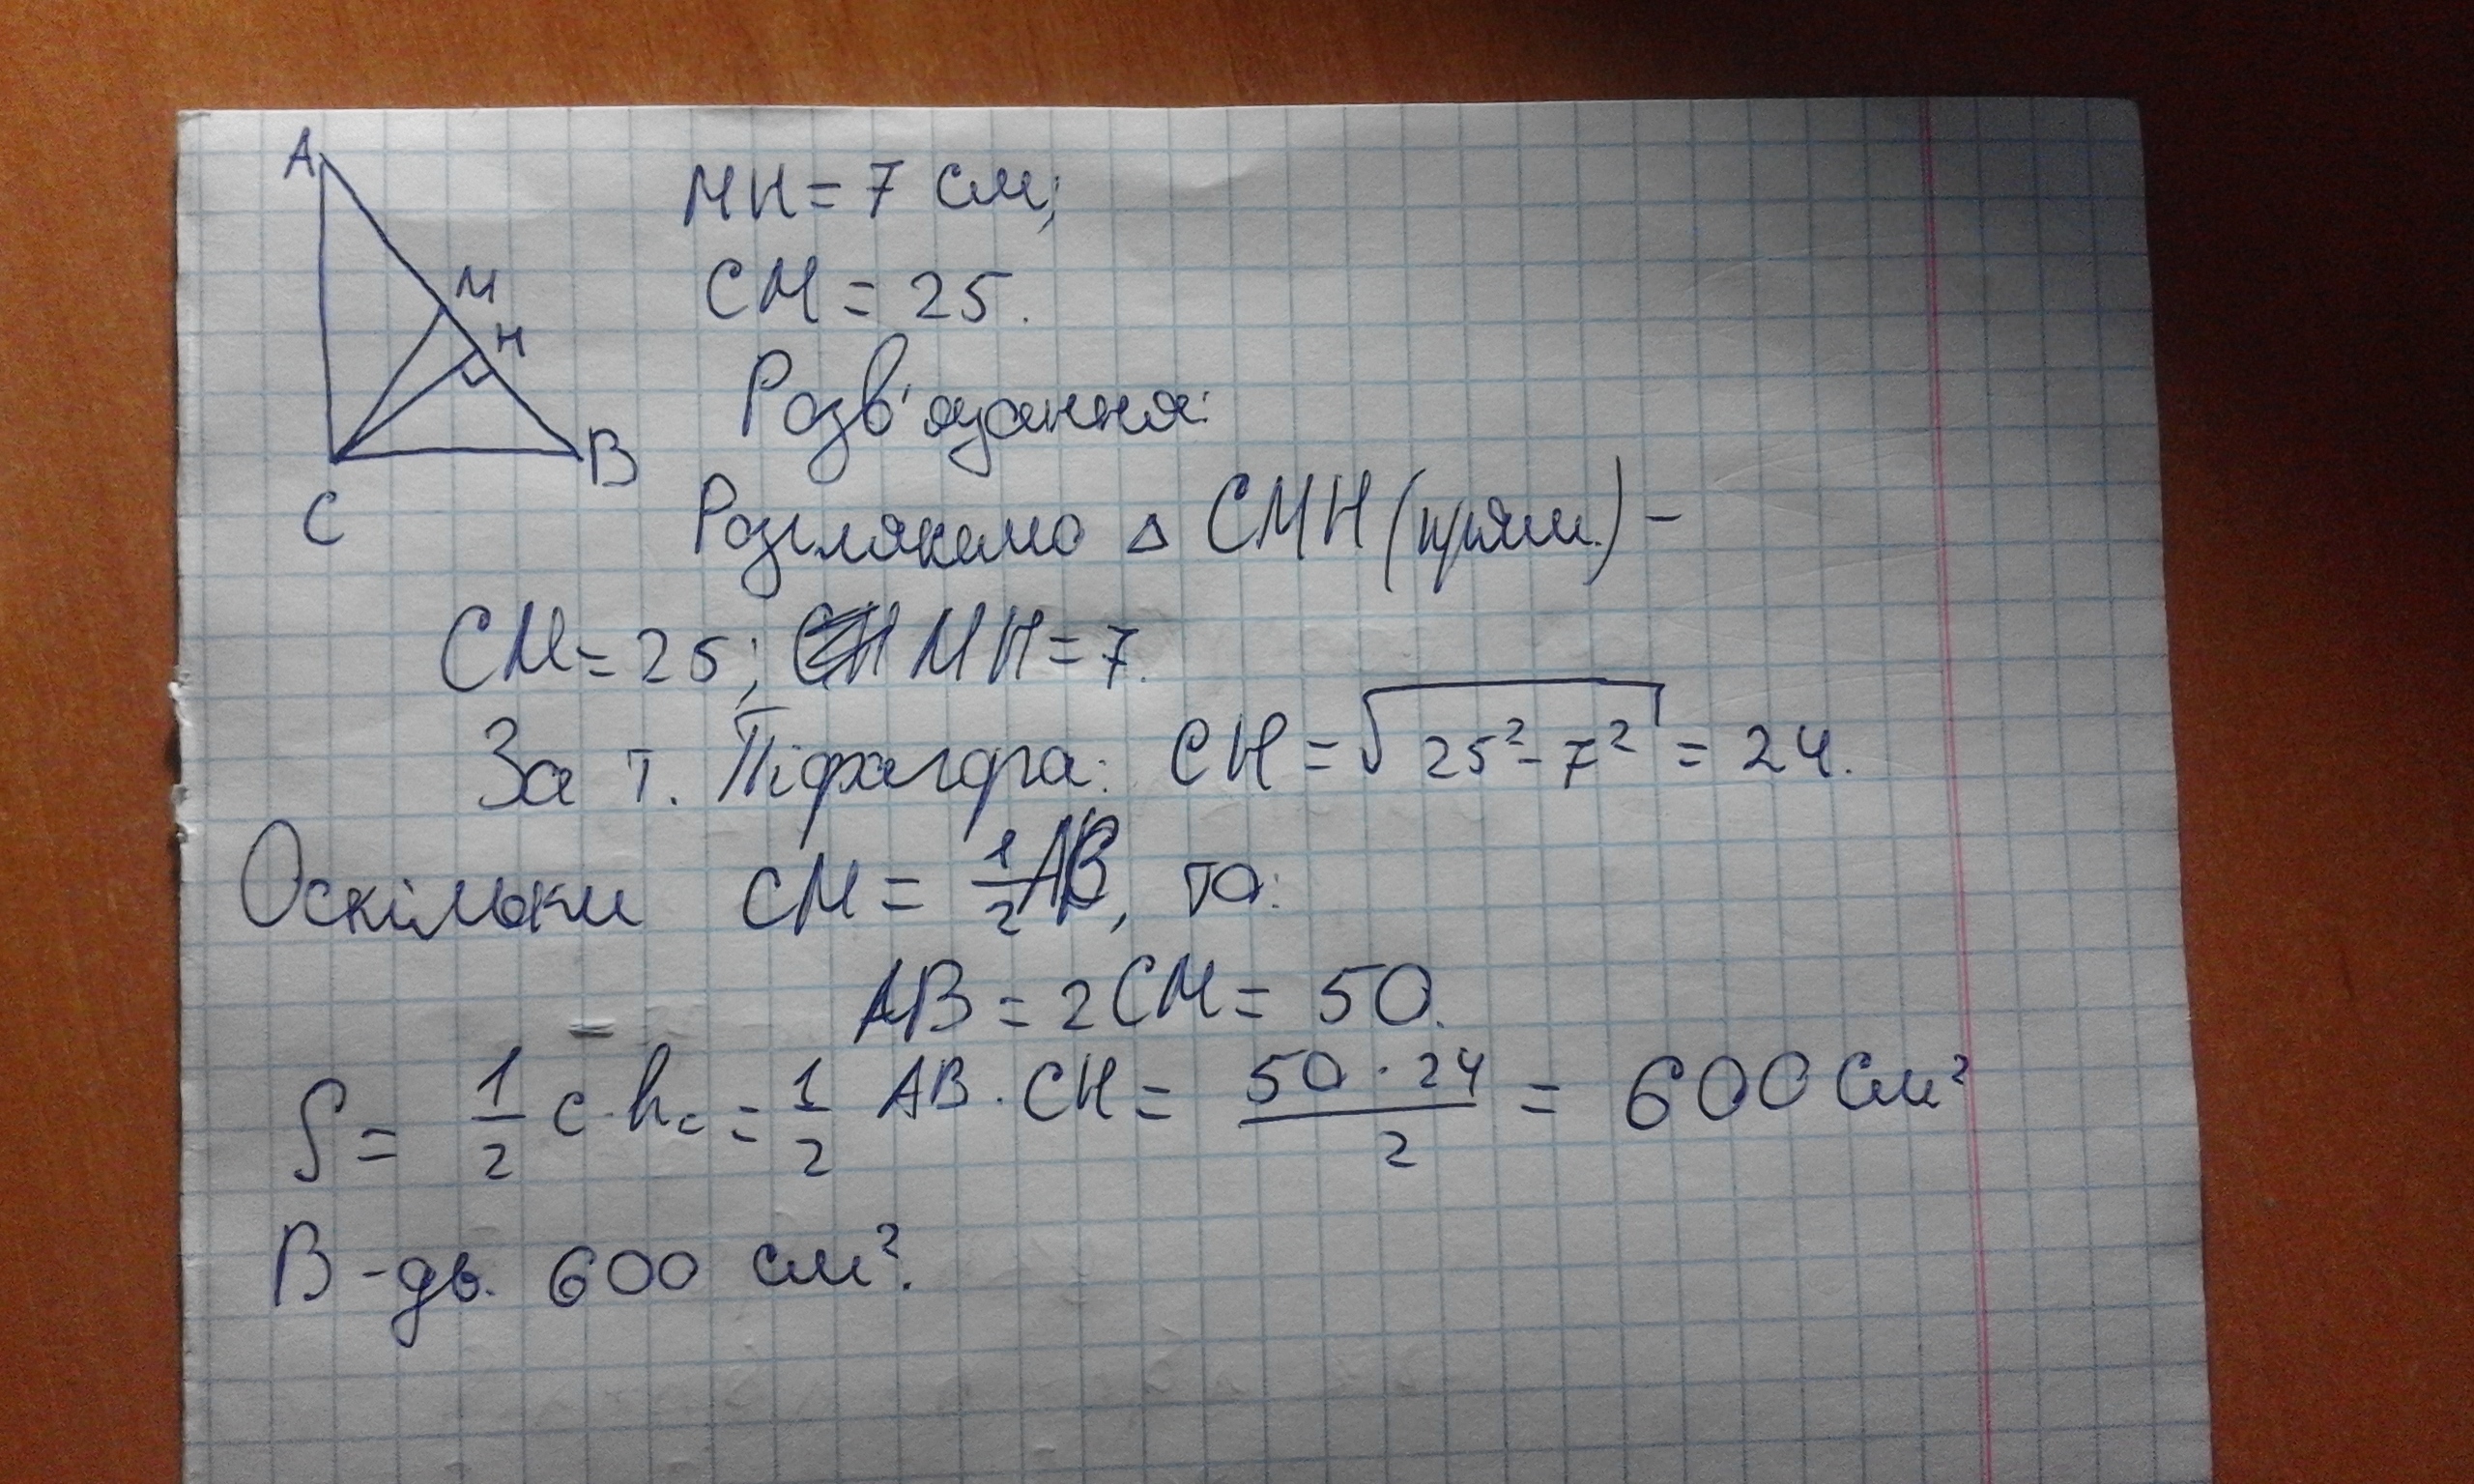 A
M
H
B
C
MH = 7 см;
CM = 25.
Розв'язання:
Розглянемо △ CMH (прям.) -
CM = 25; MH = 7.
За т. Піфагора: CH = √(25² - 7²) = 24.
Оскільки CM = 1/2 AB, то:
AB = 2CM = 50.
S = 1/2 c · hc = 1/2 AB · CH = (50 · 24)/2 = 600 см²
В-дь. 600 см².